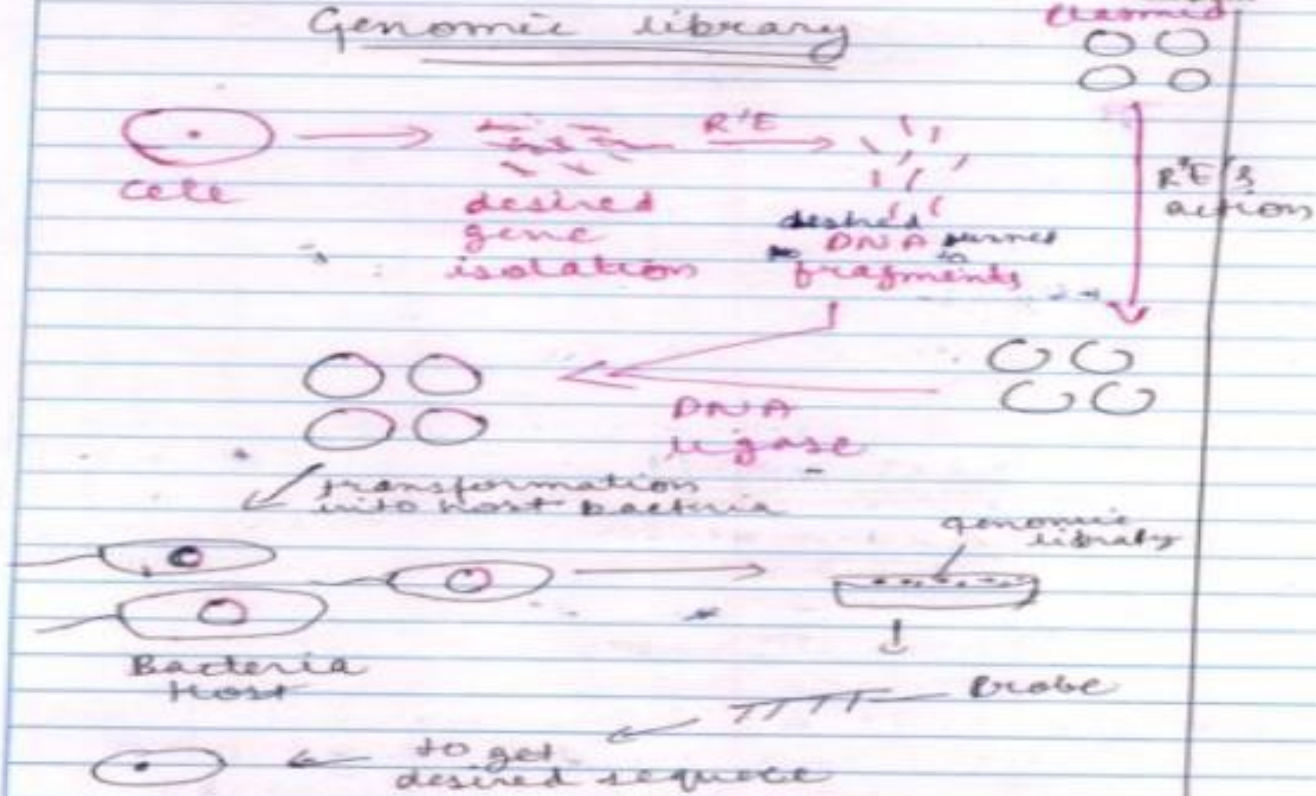 Genomic library
Plasmid
R'E
Cell
desired
gene
isolation
desired
DNA turned
to
fragments
R'E's
action
DNA
ligase
transformation
into host bacteria
genomic
library
Bacteria
Host
Probe
to get
desired sequece